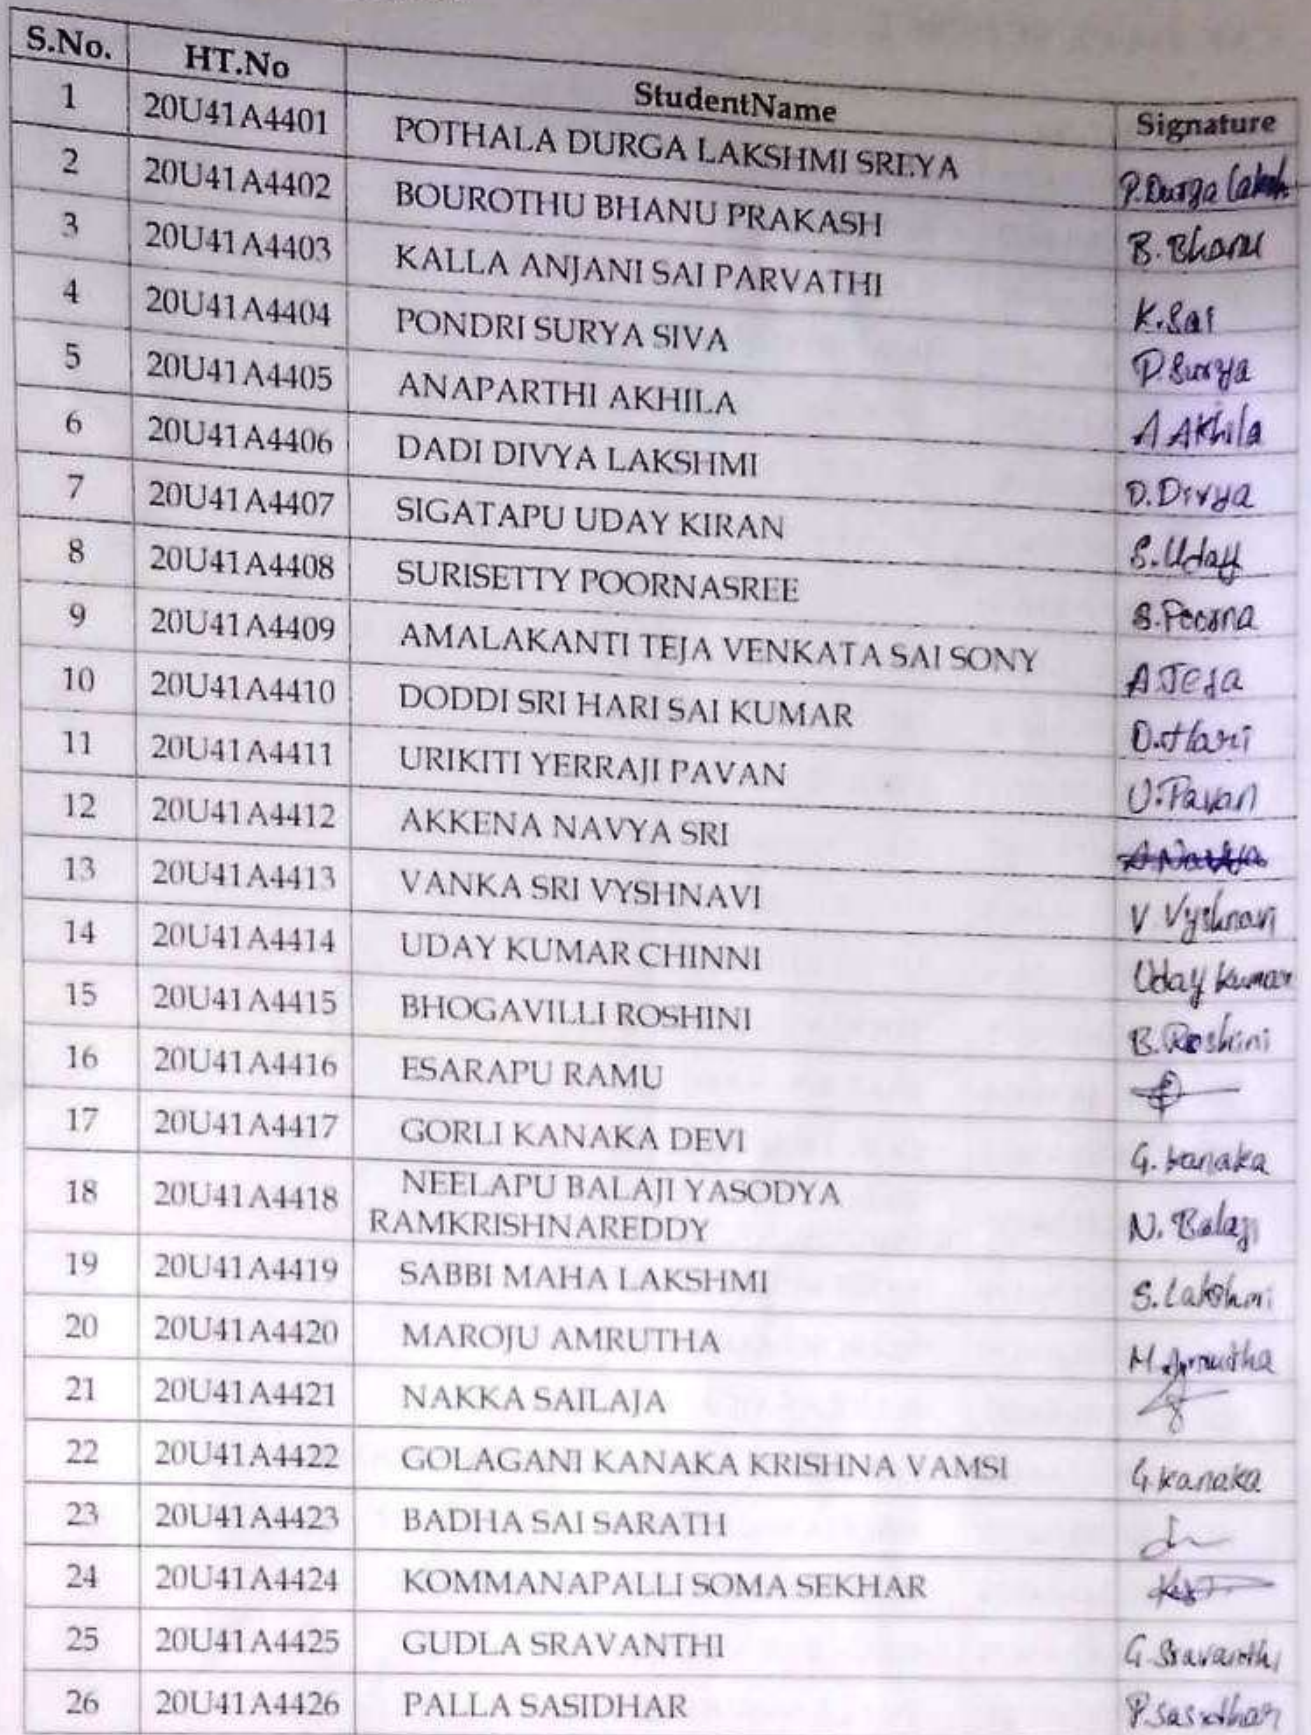 S.No. HT.No StudentName Signature
1 20U41A4401 POTHALA DURGA LAKSHMI SREYA P.Durga Laksh
2 20U41A4402 BOUROTHU BHANU PRAKASH B. Bhanu
3 20U41A4403 KALLA ANJANI SAI PARVATHI K.Sai
4 20U41A4404 PONDRI SURYA SIVA P.Surya
5 20U41A4405 ANAPARTHI AKHILA A Akhila
6 20U41A4406 DADI DIVYA LAKSHMI D.Divya
7 20U41A4407 SIGATAPU UDAY KIRAN S.Uday
8 20U41A4408 SURISETTY POORNASREE S.Poorna
9 20U41A4409 AMALAKANTI TEJA VENKATA SAI SONY A.Teja
10 20U41A4410 DODDI SRI HARI SAI KUMAR D.Hari
11 20U41A4411 URIKITI YERRAJI PAVAN U.Pavan
12 20U41A4412 AKKENA NAVYA SRI A.Navya
13 20U41A4413 VANKA SRI VYSHNAVI V Vyshnavi
14 20U41A4414 UDAY KUMAR CHINNI Uday kumar
15 20U41A4415 BHOGAVILLI ROSHINI B.Roshini
16 20U41A4416 ESARAPU RAMU
17 20U41A4417 GORLI KANAKA DEVI G. kanaka
18 20U41A4418 NEELAPU BALAJI YASODYA
RAMKRISHNAREDDY N. Balaji
19 20U41A4419 SABBI MAHA LAKSHMI S.Lakshmi
20 20U41A4420 MAROJU AMRUTHA M.Amrutha
21 20U41A4421 NAKKA SAILAJA
22 20U41A4422 GOLAGANI KANAKA KRISHNA VAMSI G.kanaka
23 20U41A4423 BADHA SAI SARATH
24 20U41A4424 KOMMANAPALLI SOMA SEKHAR
25 20U41A4425 GUDLA SRAVANTHI G.Sravanthi
26 20U41A4426 PALLA SASIDHAR P.Sasidhar